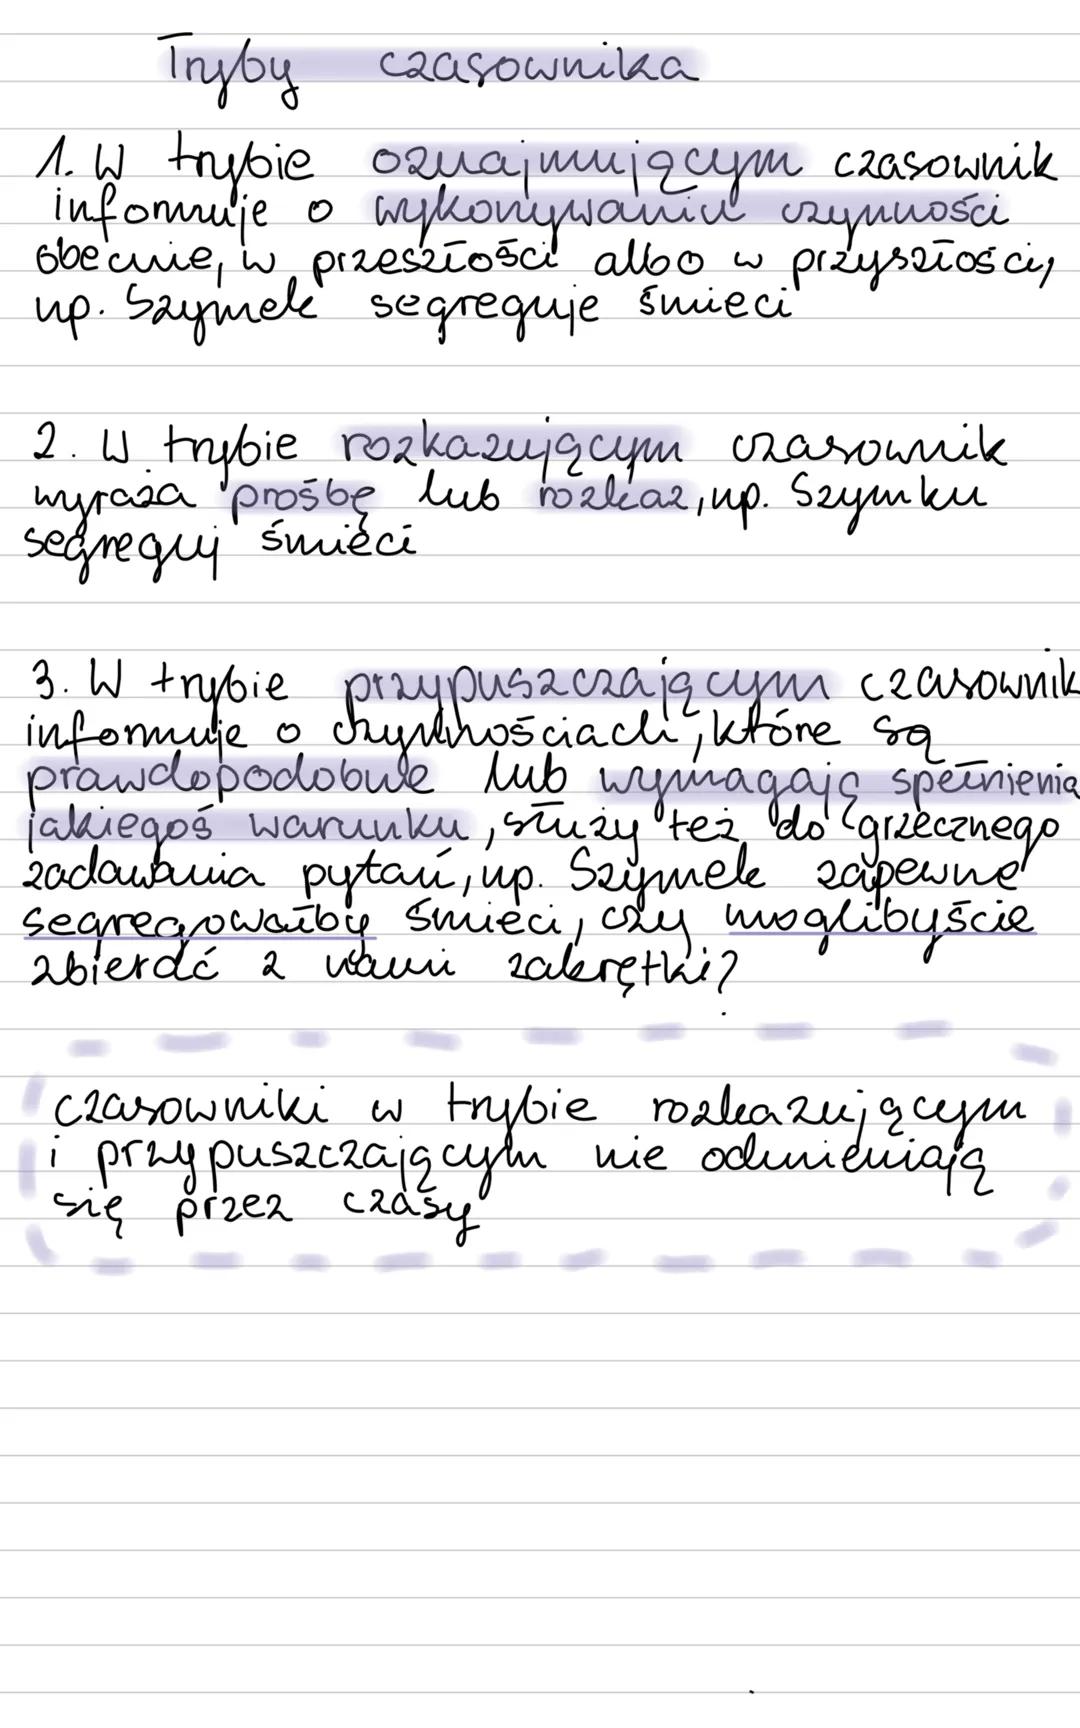 Tryby czasownika
1. W trybie oznajmującym czasownik
informuje o wykonywaniu czynności
obecnie, w przeszłości albo w przyszłości,
np. Szymek segreguje śmieci
2. W trybie rozkazującym czasownik
wyraża prośbę lub rozkaz, np. Szymku
segreguj śmieci
3. W trybie przypuszczającym czasownik
informuje o czynnościach, które są
prawdopodobne lub wymagają spełnienia
jakiegoś warunku, służy też do grzecznego
zadawania pytań, np. Szymek zapewne
segregowałby śmieci, czy moglibyście
zbierać z nami zakrętki?
czasowniki w trybie rozkazującym
i przypuszczającym nie odmieniają
się przez czasy